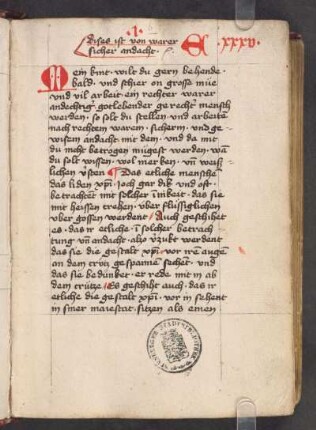 .1.
Dises ist von warer
sicher andacht.
C. xxxv.
Mein kint wilt du gern behende.
bald. und schier on grosse müe
und vil arbeit. ein rechter warer
andechtig gotlebender gerecht mensch
werden. so solt du stellen und arbeite
nach rechtem warem. sicherm. und ge-
wisem andacht. mit dem. und da mit
du nicht betrogen mügest werden. wan
du solt wissen. wol merken. un weis-
lichen Das etliche mensche
das liden xpi. joch gar dik und oft.
betrachtent mit solicher inikeit. das sie
mit heissen trehen. uber flussiglichen
uber gossen werdent / Auch geschihet
es. das ir etliche. i solicher betrach
tung un andacht. also verzukt werdent
das sie die gestalt xpi. vor iren augen
an dem crütz gespannen sehent. und
das sie bedünket. er rede mit in ab
dem crütze / Es geschiht auch. das ir
etliche die gestalt xpi. vor in sehent
in siner maiestat. sitzen als einen